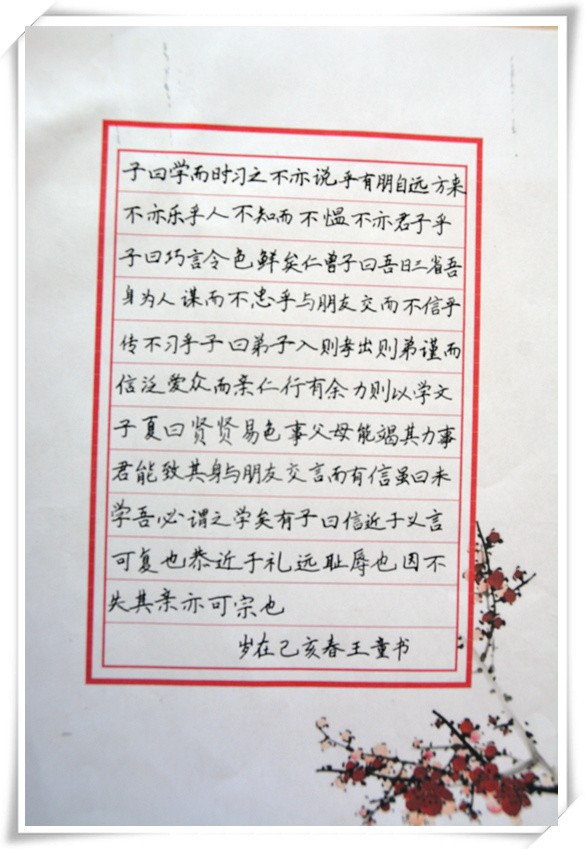 子曰学而时习之不亦说乎有朋自远方来
不亦乐乎人不知而不愠不亦君子乎
子曰巧言令色鲜矣仁曾子曰吾日三省吾
身为人谋而不忠乎与朋友交而不信乎
传不习乎子曰弟子入则孝出则弟谨而
信泛爱众而亲仁行有余力则以学文
子夏曰贤贤易色事父母能竭其力事
君能致其身与朋友交言而有信虽曰未
学吾必谓之学矣有子曰信近于义言
可复也恭近于礼远耻辱也因不
失其亲亦可宗也
岁在己亥春王童书